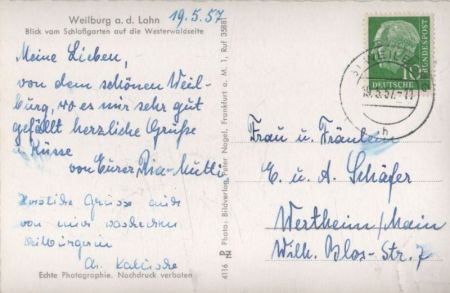 Weilburg a. d. Lahn
Blick vom Schloßgarten auf die Westerwaldseite
19.5.57
Meine Lieben,
von dem schönen Weil-
burg, wo es mir sehr gut
gefällt herzliche Grüße
u Küsse
von Eurer Ria-Mutti
Herzliche Grüsse auch
von
Echte Photographie. Nachdruck verboten
4116 Photo: Bildverlag Peter Nagel, Frankfurt a. M. 1, Ruf 35881
10
DEUTSCHE
BUNDESPOST
Frau u. Fräulein
E. u. A. Schäfer
Wertheim/Main
Wilh. Blos-Str. 7